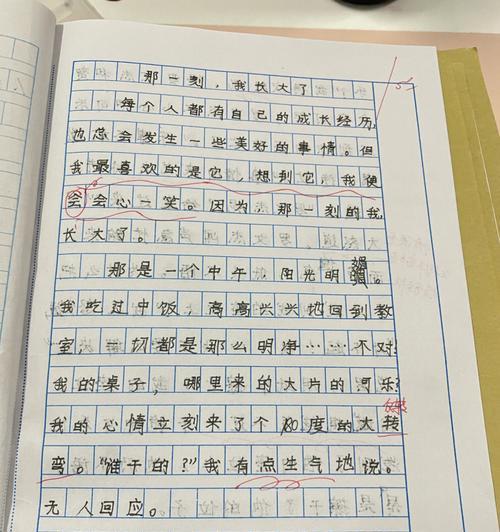 那一刻,我长大了
每个人都有自己的成长经历,
也总会发生一些美好的事情。但
我最喜欢的是它,想到它,我便
会会心一笑。因为,那一刻的我,
长大了。
那是一个中午,阳光明。
我吃过中饭,高高兴兴地回到教
室,一切都是那么明净……不对!
我的桌子,哪里来的大片的可乐?
我的心情立刻来了个180度的大转
弯。“谁干的?”我有点生气地说。
无人回应。